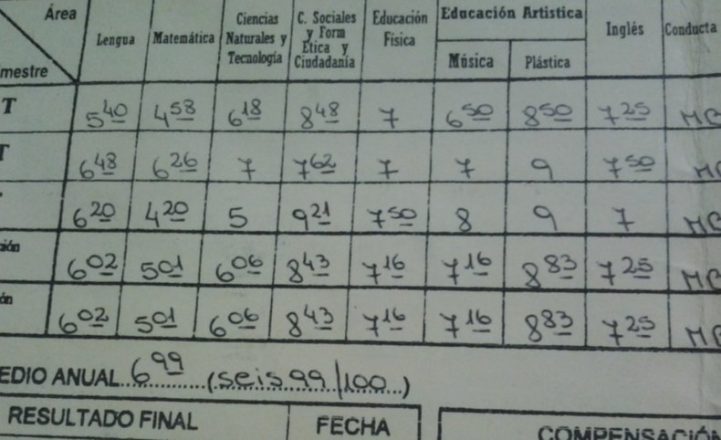 Área Lengua Matemática Ciencias Naturales y Tecnología C. Sociales y Form Ética y Ciudadanía Educación Física Educación Artística Inglés Conducta
Música Plástica
mestre
T 5 40 4 58 6 18 8 48 7 6 50 8 50 7 25
T 6 48 6 26 7 7 62 7 7 9 7 50
6 20 4 20 5 9 21 7 50 8 9 7
ción 6 02 5 01 6 06 8 43 7 16 7 16 8 83 7 25
ón 6 02 5 01 6 06 8 43 7 16 7 16 8 83 7 25
EDIO ANUAL 6 99 (seis 99/100)
RESULTADO FINAL FECHA COMPENSACIÓN